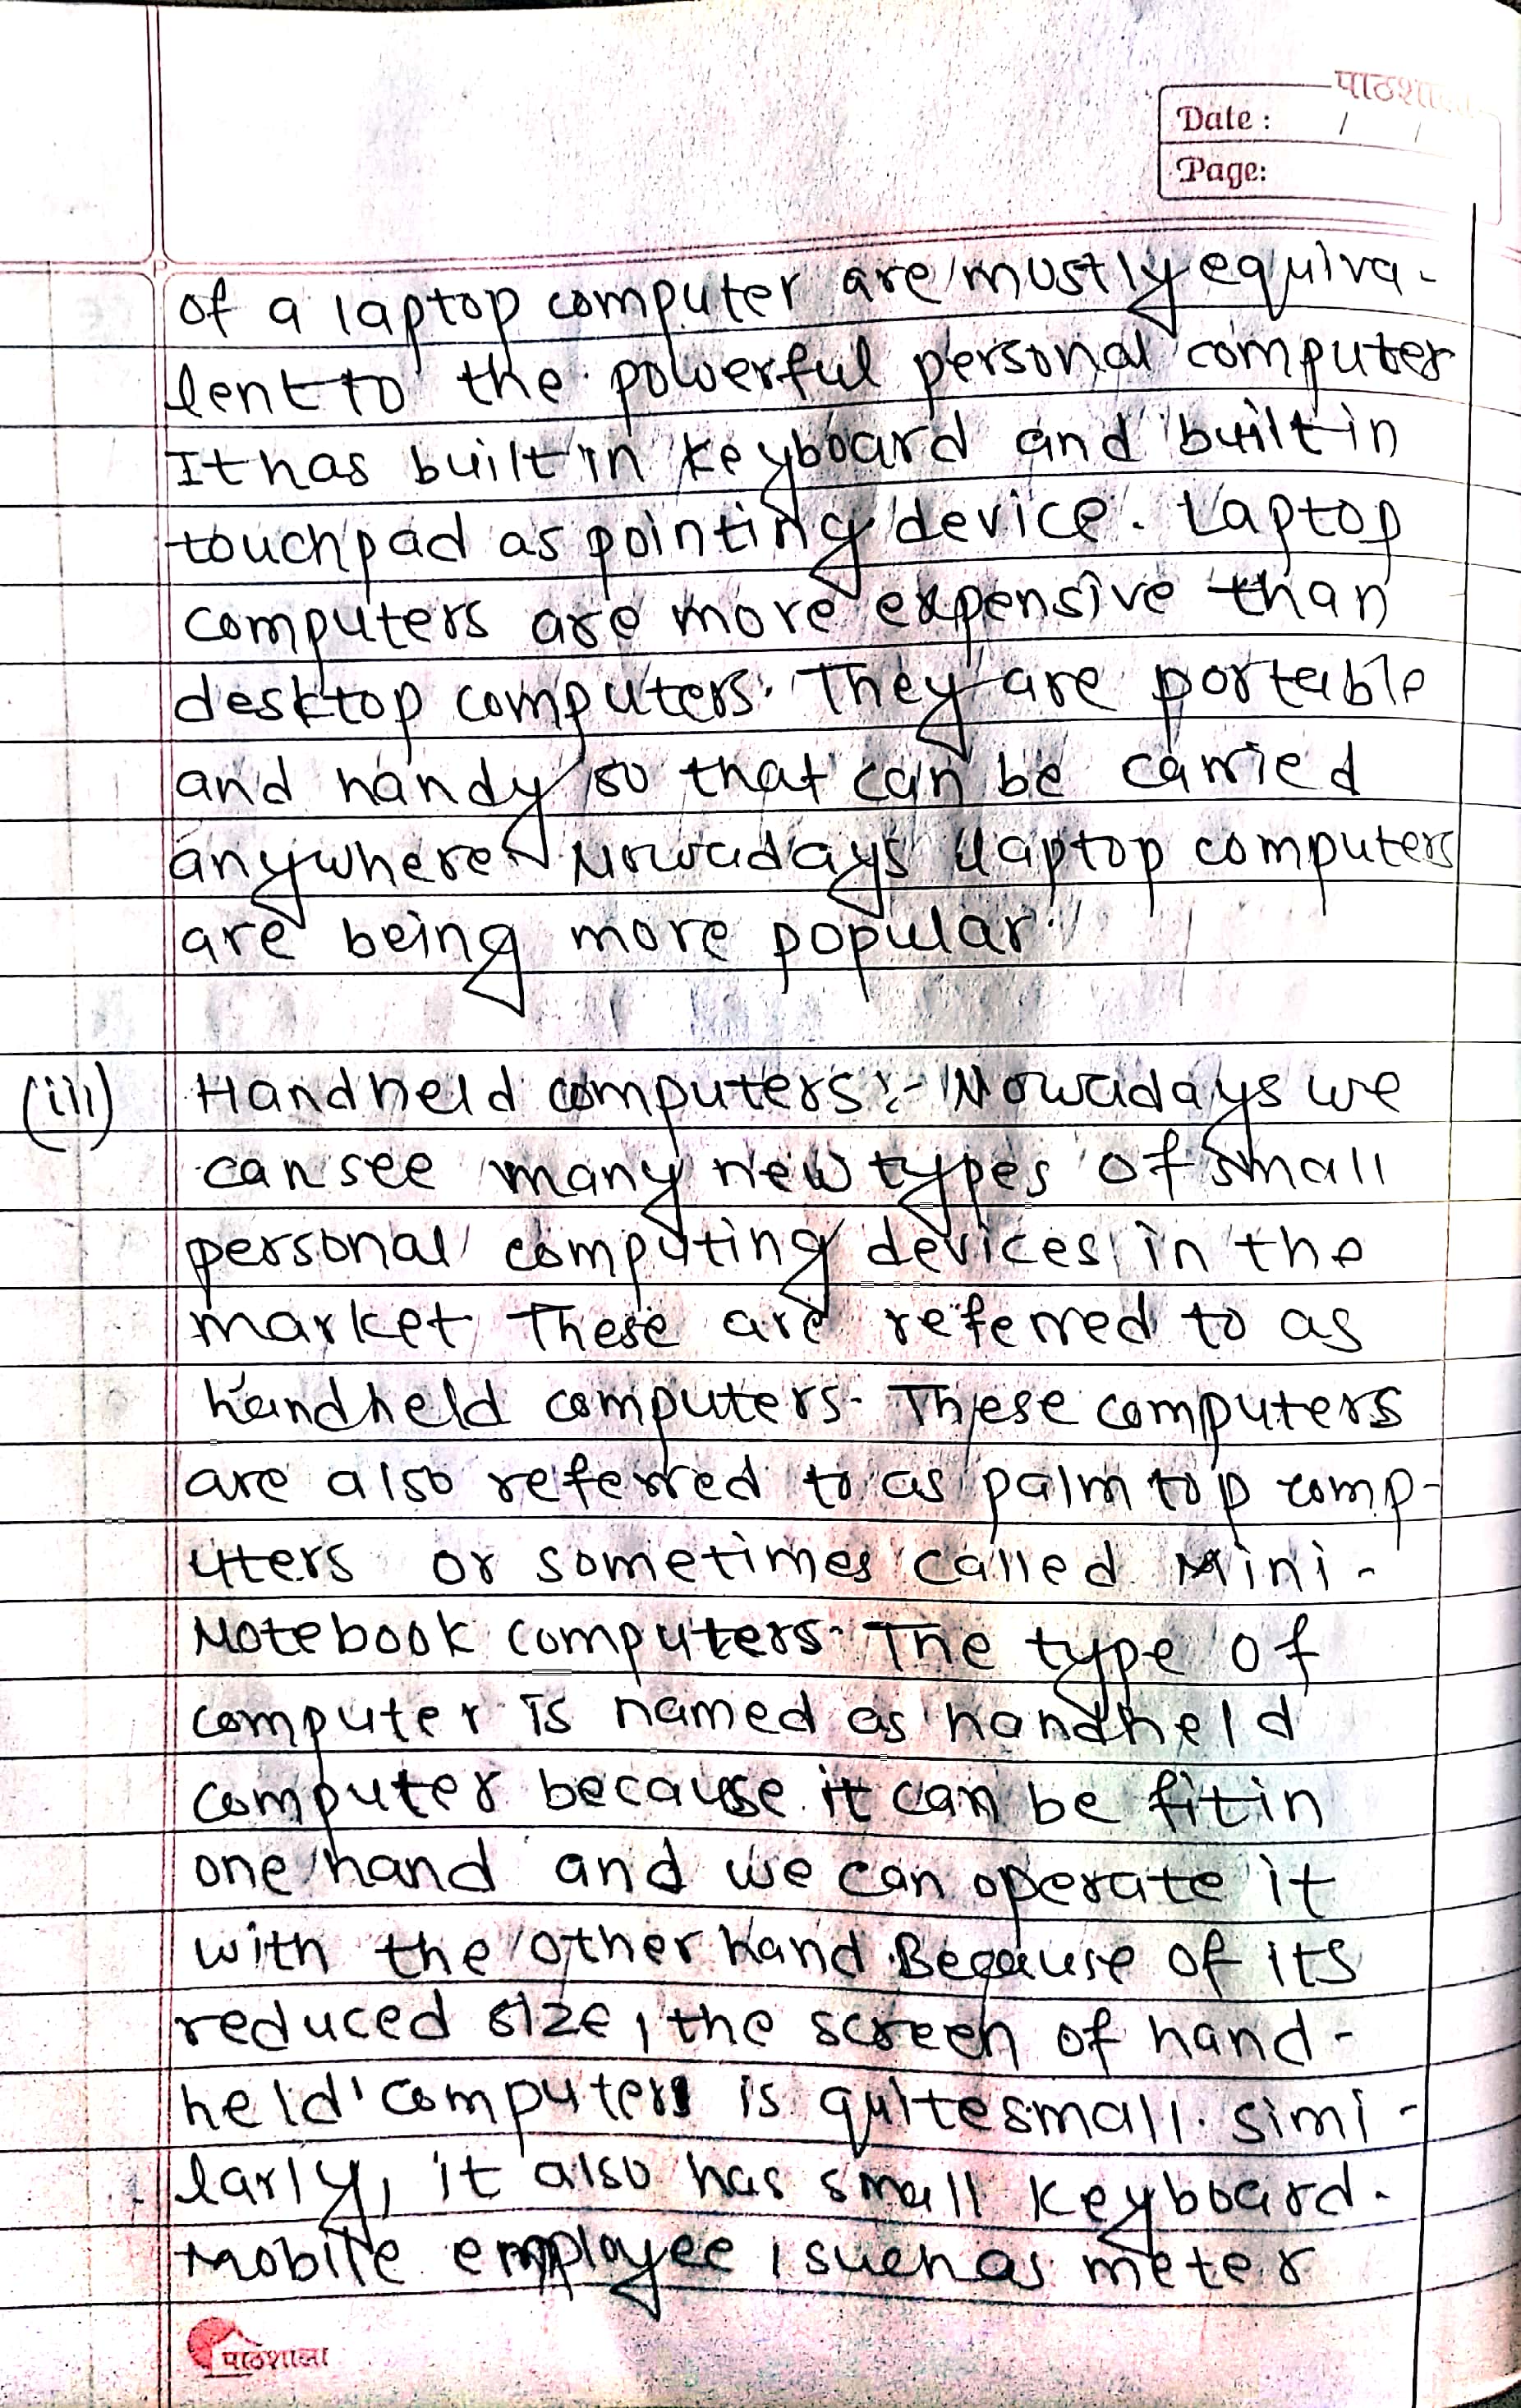 पाठशाला
Date : / /
Page:
of a laptop computer are mostly equiva-
lent to the powerful personal computer
It has built in keyboard and built in
touchpad as pointing device. Laptop
computers are more expensive than
desktop computers. They are portable
and handy so that can be carried
anywhere. Nowadays laptop computers
are being more popular.
(iii) Handheld computers:- Nowadays we
can see many new types of small
personal computing devices in the
market These are referred to as
handheld computers. These computers
are also referred to as palm top comp-
uters or sometimes called Mini-
Notebook computers. The type of
computer is named as handheld
computer because it can be fit in
one hand and we can operate it
with the other hand. Because of its
reduced size, the screen of hand-
held computers is quite small. simi-
larly, it also has small keyboard.
Mobile employee, such as meter
पाठशाला